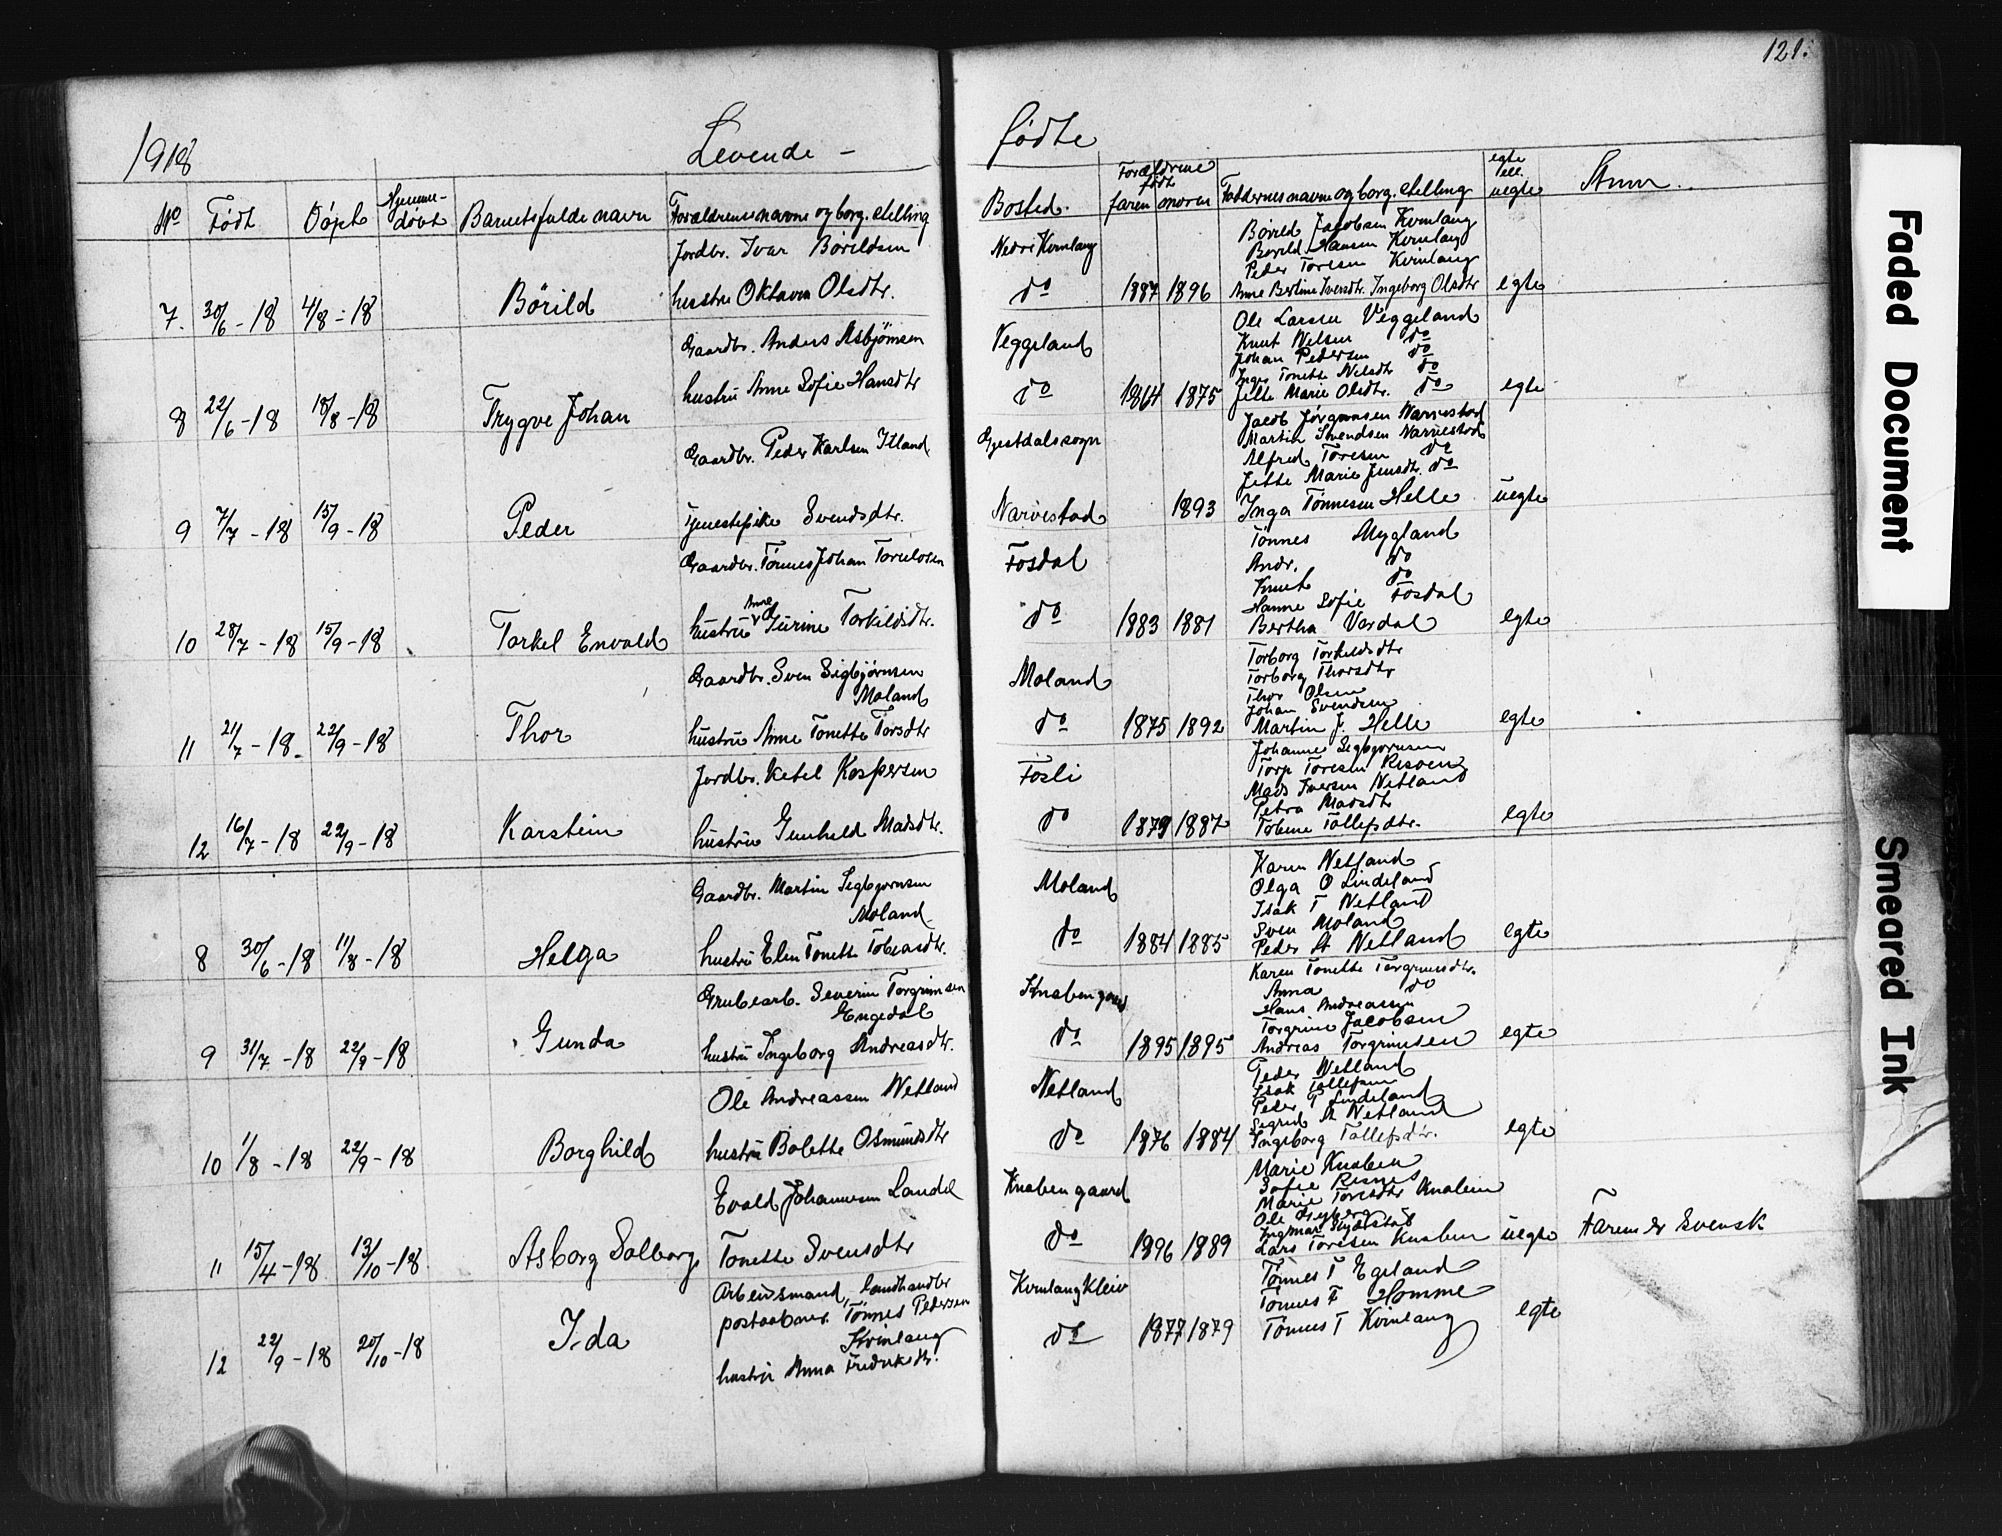 121.
1918 Levende - fødte
No Født Døpt Hjemme-døbt Barnets fulde navn Forældrenes navne og borg. stilling Bosted. Forældrene født faren moren Faddernes navne og borg. stilling egte ell. uegte Anm.
Jordbr. Ivar Børildsen Nedre Kvinlaug Børild Jacobsen Kvinlaug
Børild Hansen Kvinlaug
Peder Toresen Kvinlaug
7. 30/6-18 4/8-18 Børild hustru Oktavia Olsdtr. do 1887 1896 Anne Bertine Iversdtr. Ingeborg Olsdtr egte
Gaardbr. Anders Asbjørnsen Veggeland Ole Larsen Veggeland
Knut Nilsen do
Johan Pedersen do
Inger Tonette Nilsdtr do
8 22/6-18 18/8-18 Trygve Johan hustru Anne Sofie Hansdtr do 1864 1875 Jette Marie Olsdtr. do egte
Gaardbr. Peder Karlsen Itland Gjestdalssogn Jacob Jørgensen Narvestad
Martin Svendsen Narvestad
Alfred Toresen do
Jette Marie Jensdtr. do
9 7/7-18 15/9-18 Peder Tjenestepike Svendsdtr. Narvestad 1893 Inga Tønnesen Helle uegte
Gaardbr. Tønnes Johan Fosdal Tønnes Mygland
Andr. do
Knut do
Hanne Sofie Fosdal
10 28/7-18 15/9-18 Torkel Envald hustru Anne Turine Torkildsdtr. do 1883 1881 Bertha Vordal egte
Gaardbr. Sven Sigbjørnsen Moland Moland Torborg Torkildsdtr
Torborg Thorsdtr
Thor Olsen
Johan Svendsen
11 21/7-18. 22/9-18 Thor hustru Anne Tonette Torsdtr do 1875 1892 Martin J. Helle egte
Jordbr. Ketel Kaspersen Fosli Johannes Sigbjørnsen
Torp Toresen Risøen
Mads Iversen Netland
Petra Madsdtr
12 16/7-18 22/9-18 Karstein hustru Gunhild Madsdtr. do 1879 1887 Tobine Tollefsdtr. egte
Gaardbr. Martin Sigbjørnsen Moland Moland Karen Netland
Olga O Lindeland
Isak T Netland
Sven Moland
8 30/6-18 11/8-18 Helga hustru Elen Tonette Tobiasdtr. do 1884 1885 Peder A Netland egte
Grubearb. Severin Torgrimsen Engedal Knabengaard Karen Tonette Torgrimsdtr.
Anna do
Hans Andreassen
Torgrim Jacobsen
9 31/7-18 22/9-18 Gunda hustru Ingeborg Andreasdtr. do 1895 1895 Andreas Torgrimsen egte
Ole Andreassen Netland Netland Peder Netland
Isak Tollefsen
Peder T Lindeland
Sigrid A Netland
10 1/8-18 22/9-18 Borghild hustru Bolette Osmundsdtr do 1876 1884 Ingeborg Tollefsdtr. egte
Evald Johannesen Landel Knabengaard Marie Knaben
Sofie Risnes
Marie Toresdtr Knaben
Ole
Ingmar
11 15/4-18 13/10-18. Asborg Solborg Tonette Svensdtr do 1896 1889 Lars Toresen Knaben uegte Faren er Svensk
Arbeidsmand, landhandler Kvinlaug Kleiv Tønnes T Egeland
postaabner Tønnes Pedersen Kvinlaug Tønnes F Homme
12 22/9-18 20/10-18 Ida hustru Anna Fredriksdtr. do 1877 1879 Tønnes T Kvinlaug egte
Faded Document
Smeared Ink